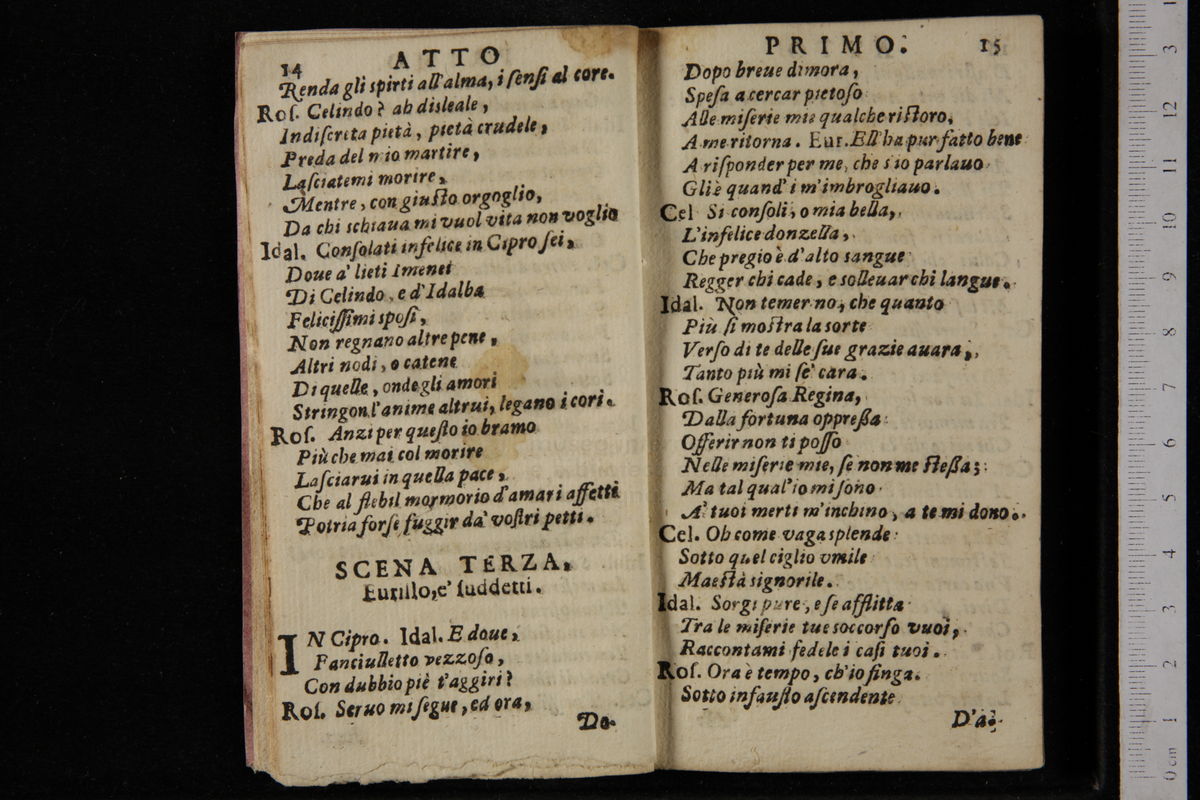 14 ATTO
Renda gli spirti all'alma, i ſenſi al core.
Roſ. Celindo? ah disleale,
Indiſcreta pietà, pietà crudele,
Preda del mio martire,
Laſciatemi morire,
Mentre, con giuſto orgoglio,
Da chi schiaua mi vuol vita non voglio
Idal. Conſolati infelice in Cipro ſei,
Doue a' lieti Imenei
Di Celindo, e d'Idalba
Feliciſſimi spoſi,
Non regnano altre pene,
Altri nodi, o catene
Di quelle, onde gli amori
Stringon l'anime altrui, legano i cori.
Roſ. Anzi per queſto io bramo
Più che mai col morire
Laſciarui in quella pace,
Che al flebil mormorio d'amari affetti
Potria forſe fuggir da' voſtri petti.
SCENA TERZA,
Eurillo, e' ſuddetti.
IN Cipro. Idal. E doue,
Fanciulletto vezzoſo,
Con dubbio piè t'aggiri?
Roſ. Seruo mi ſegue, ed ora,
Do-
PRIMO. 15
Dopo breue dimora,
Speſa a cercar pietoſo
Alle miſerie mie qualche riſtoro,
A me ritorna. Eur. Ell' ha pur fatto bene
A riſponder per me, che s'io parlauo
Gli è quand' i m'imbrogliauo.
Cel Si conſoli, o mia bella,
L'infelice donzella,
Che pregio è d'alto sangue
Regger chi cade, e solleuar chi langue.
Idal. Non temer no, che quanto
Più ſi moſtra la sorte
Verſo di te delle ſue grazie auara,
Tanto più mi ſe' cara.
Roſ. Generoſa Regina,
Dalla fortuna oppreßa
Offerir non ti poſſo
Nelle miſerie mie, ſe non me ſteßa;
Ma tal qual' io mi ſono
A' tuoi merti m'inchino, a te mi dono.
Cel. Oh come vaga splende
Sotto quel ciglio vmile
Maeſtà signorile.
Idal. Sorgi pure, e ſe afflitta
Tra le miſerie tue soccorſo vuoi,
Raccontami fedele i caſi tuoi.
Roſ. Ora è tempo, ch'io finga.
Sotto infauſto aſcendente
D'a-
0 cm 1 2 3 4 5 6 7 8 9 10 11 12 3